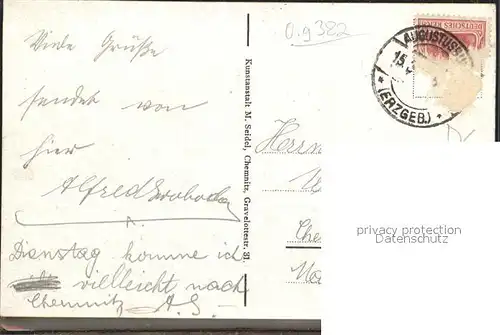 Viele Grüße
sendet von
hier
Alfred
Dienstag komme ich
vielleicht nach
Chemnitz A.S.
O.g 322
Kunstanstalt M. Seidel, Chemnitz, Gravelottestr. 31.
DEUTSCHES REICH
AUGUSTUSBU
15.
* (ERZGEB.) *
Herrn
Che
privacy protection
Datenschutz